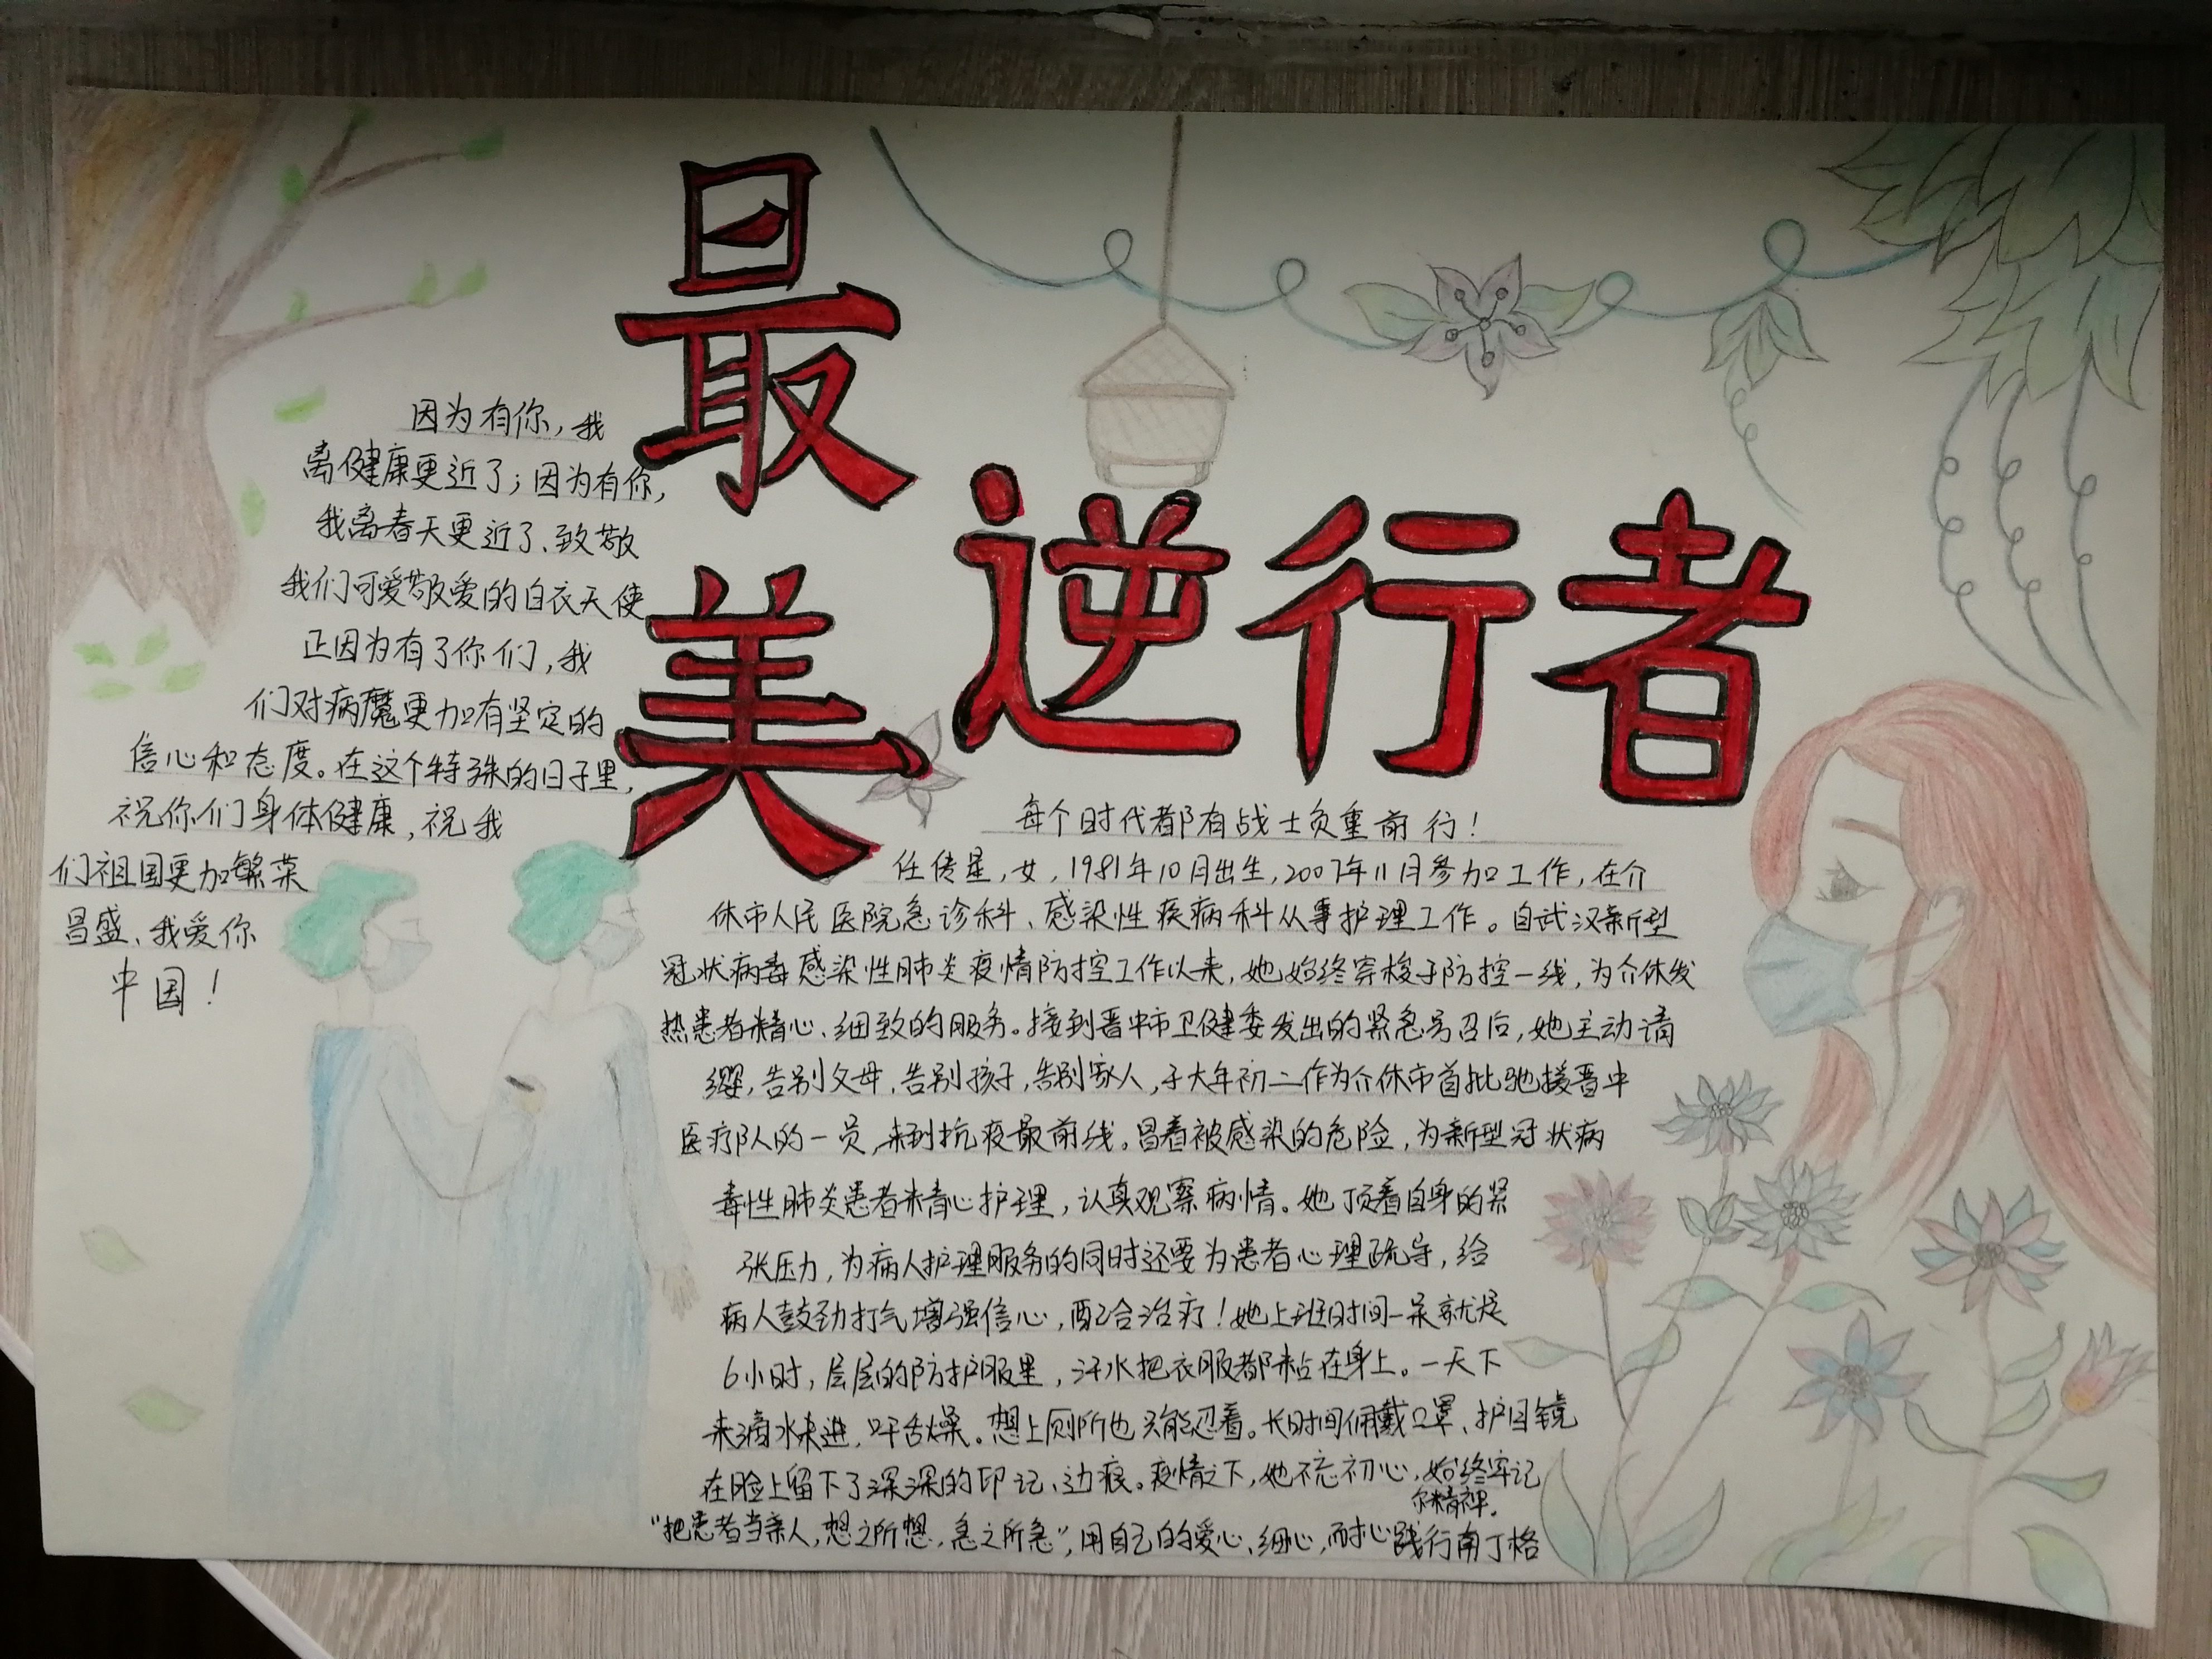 最美逆行者
因为有你，我
离健康更近了；因为有你，
我离春天更近了、致敬
我们可爱敬爱的白衣天使
正因为有了你们，我
们对病魔更加有坚定的
信心和态度。在这个特殊的日子里，
祝你们身体健康，祝我
们祖国更加繁荣
昌盛、我爱你
中国！
每个时代都有战士负重前行！
任传星，女，1981年10月出生，2007年11月参加工作，在介
休市人民医院急诊科、感染性疾病科从事护理工作。自武汉新型
冠状病毒感染性肺炎疫情防控工作以来，她始终穿梭于防控一线，为介休发
热患者精心、细致的服务。接到晋中市卫健委发出的紧急号召后，她主动请
缨，告别父母，告别孩子，告别家人，于大年初二作为介休市首批驰援晋中
医疗队的一员，来到抗疫最前线。冒着被感染的危险，为新型冠状病
毒性肺炎患者精心护理，认真观察病情。她顶着自身的紧
张压力，为病人护理服务的同时还要为患者心理疏导，给
病人鼓劲打气增强信心，配合治疗！她上班时间一呆就是
6小时，层层的防护服里，汗水把衣服都粘在身上。一天下
来滴水未进，口干舌燥。想上厕所也只能忍着。长时间佩戴口罩、护目镜
在脸上留下了深深的印记、边痕。疫情之下，她不忘初心，始终牢记
“把患者当亲人，想之所想，急之所急”，用自己的爱心、细心，耐心践行南丁格
尔精神。